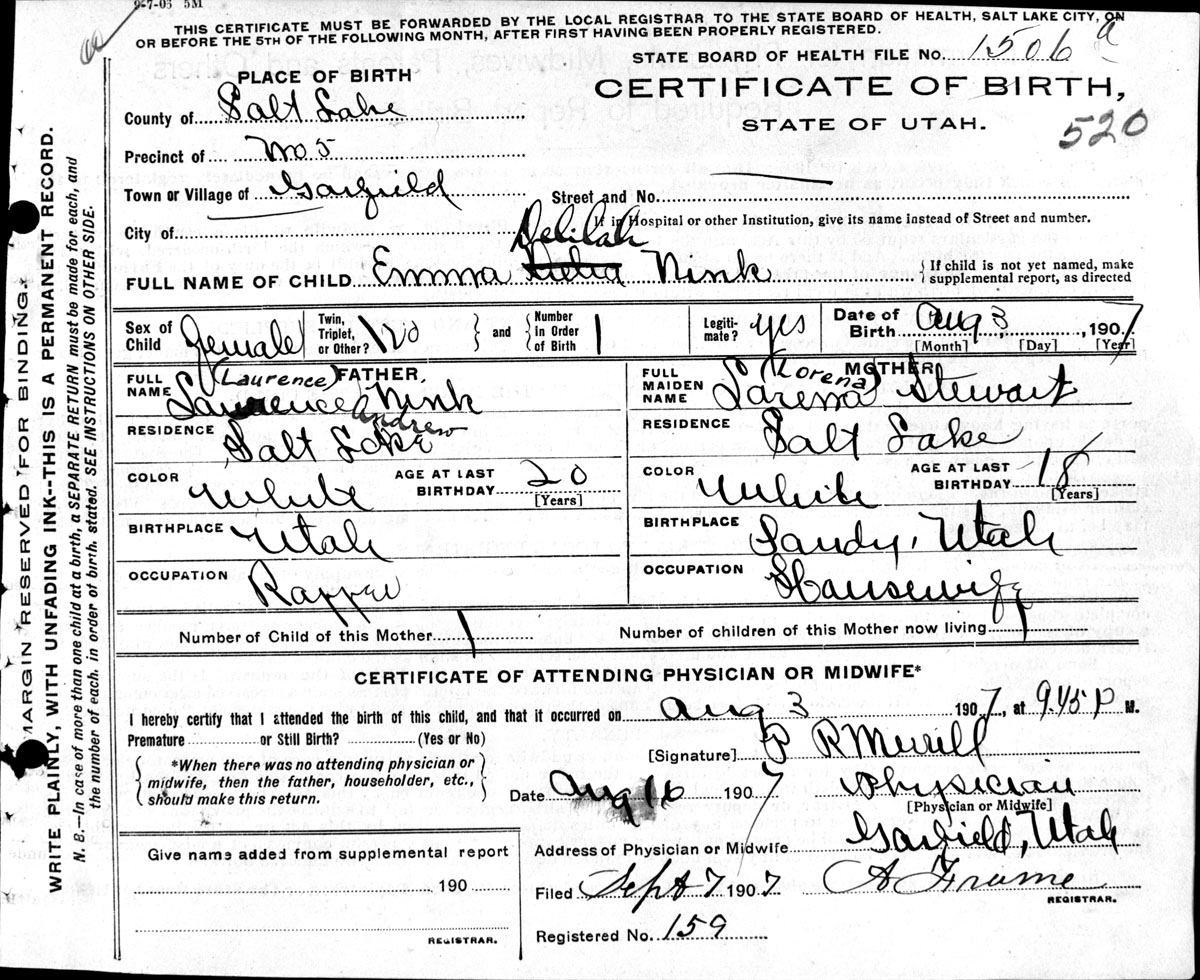 9-7-05 5M
THIS CERTIFICATE MUST BE FORWARDED BY THE LOCAL REGISTRAR TO THE STATE BOARD OF HEALTH, SALT LAKE CITY, ON
OR BEFORE THE 5TH OF THE FOLLOWING MONTH, AFTER FIRST HAVING BEEN PROPERLY REGISTERED.
STATE BOARD OF HEALTH FILE No. 1506 a
PLACE OF BIRTH
CERTIFICATE OF BIRTH,
STATE OF UTAH.
520
County of Salt Lake
Precinct of No 5
Town or Village of Garfield
Street and No.
City of
If in Hospital or other Institution, give its name instead of Street and number.
Delilah
FULL NAME OF CHILD Emma Nink
If child is not yet named, make supplemental report, as directed
Sex of Child Female
Twin, Triplet, or Other? No
and Number in Order of Birth 1
Legitimate? yes
Date of Birth Aug 3, 1907
[Month] [Day] [Year]
FATHER,
FULL NAME (Laurence)
Lawrence Nink
Andrew
RESIDENCE Salt Lake
COLOR White
AGE AT LAST BIRTHDAY 20
[Years]
BIRTHPLACE Utah
OCCUPATION
MOTHER,
FULL MAIDEN NAME (Lorena)
Larena Stewart
RESIDENCE Salt Lake
COLOR White
AGE AT LAST BIRTHDAY 18
(Years]
BIRTHPLACE Sandy, Utah
OCCUPATION Housewife
Number of Child of this Mother 1
Number of children of this Mother now living 1
CERTIFICATE OF ATTENDING PHYSICIAN OR MIDWIFE*
I hereby certify that I attended the birth of this child, and that it occurred on Aug 3 1907, at 9.45 P M.
Premature or Still Birth? (Yes or No)
[Signature] P R Merrill
*When there was no attending physician or
midwife, then the father, householder, etc.,
should make this return.
Date Aug 16 1907 Physician
[Physician or Midwife]
Address of Physician or Midwife Garfield, Utah
Give name added from supplemental report
190
REGISTRAR.
Filed Sept 7 1907 A Frame
REGISTRAR.
Registered No. 159
MARGIN RESERVED FOR BINDING
WRITE PLAINLY, WITH UNFADING INK--THIS IS A PERMANENT RECORD.
N. B.—In case of more than one child at a birth, a SEPARATE RETURN must be made for each, and
the number of each. in order of birth. stated. SEE INSTRUCTIONS ON OTHER SIDE.